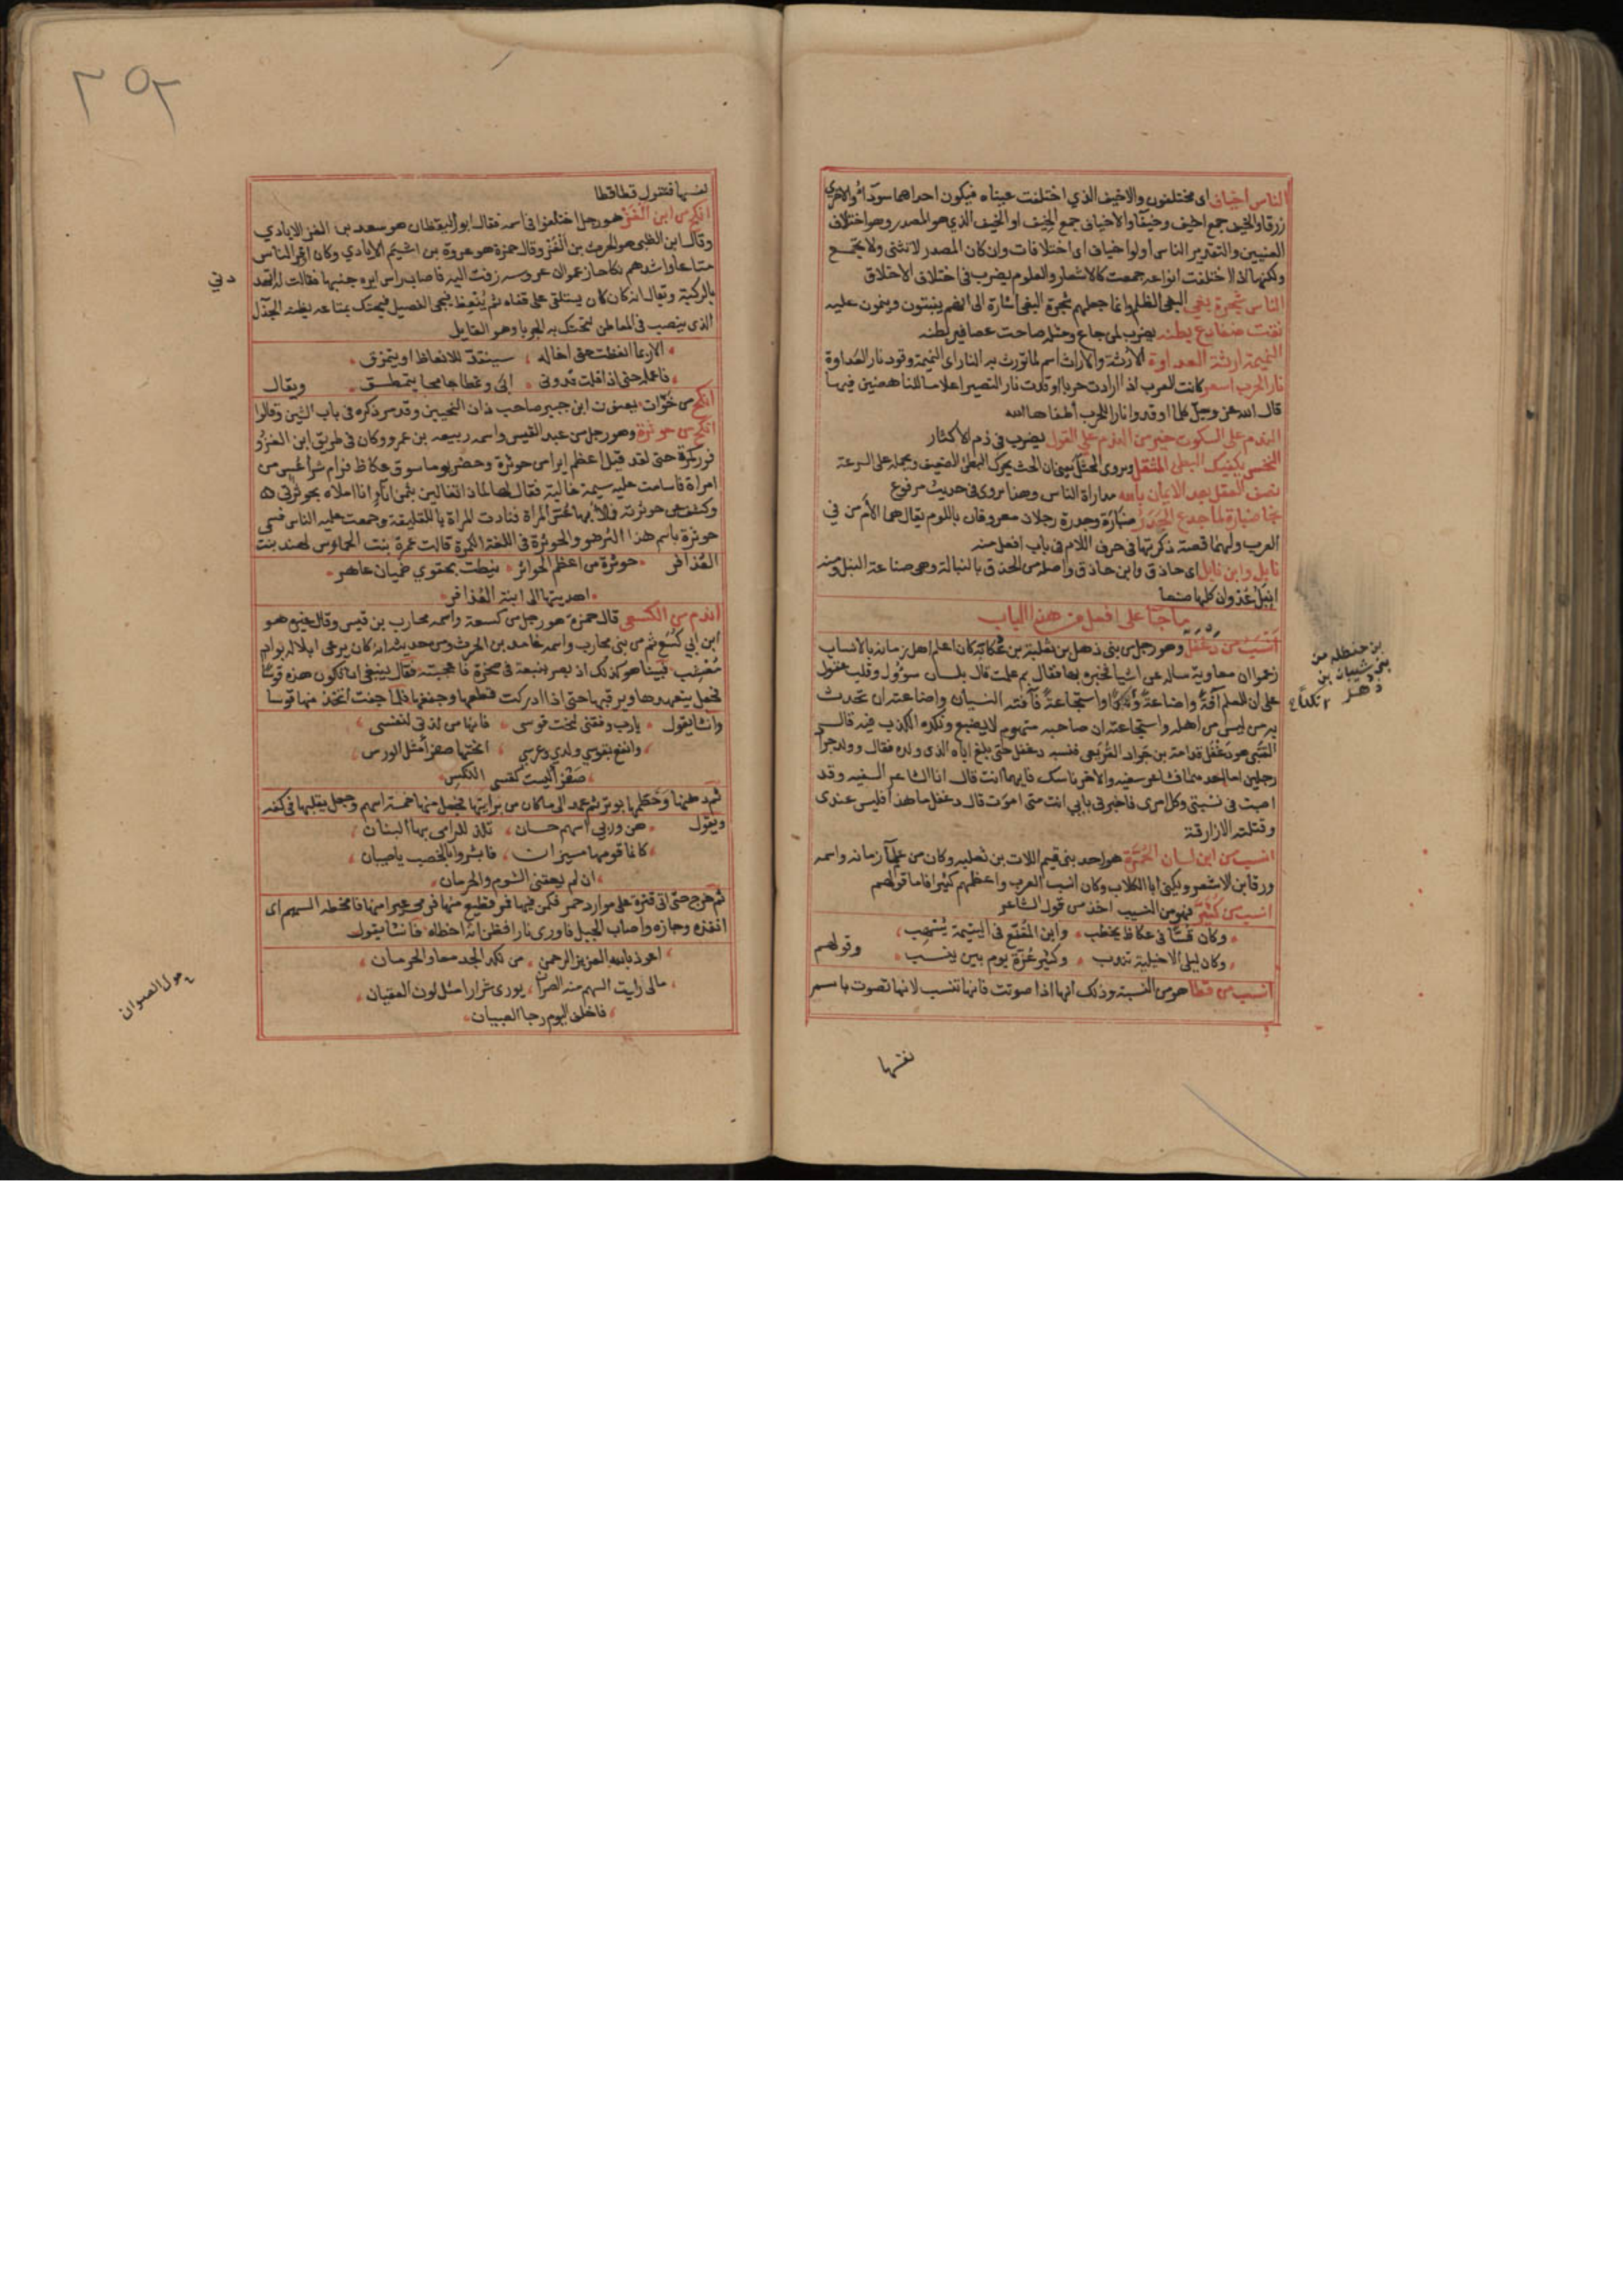 الناس أخياف اى مختلفون والاخيف الذي اختلفت عيناه فيكون احداهما سوداء والاخرى
زرقا والخيف جمع اخيف وخيفا والاخياف جمع الخيف او الخيف الذي هو المصدر وهو اختلاف
العينين والتقدير الناس أولوا خياف اى اختلافات وان كان المصدر لا تثنى ولا يجتمع
ولكنها اذا اختلفت انواعه جمعت كالاشعار والعلوم يضرب فى اختلاف الاخلاق
الناس شجرة بغي البغى الظلم وانما جعلهم شجرة البغى اشارة الى انهم ينبتون وينمون عليه
نقت ضفادع بطنه يضرب لمن جاع ومثله صاحت عصافير بطنه
النميمة ارثة العداوة الارثة والاراث اسم لما تورث به النار اى النميمة وقود نار العداوة
نار الحرب اسعر كانت للعرب اذا ارادت حربا اوقدت نار التصير اعلاما للناهضين فيها
قال الله عز وجل كلما اوقدوا نارا للحرب أطفاها الله
الندم على السكوت خير من الندم على القول يضرب فى ذم الاكثار
النخس يكفيك البطى المثقل ويروى المحثل يعنى ان الحث يحرك البطئ الضعيف ويحمله على السرعة
نصف العقل بعد الايمان بالله مداراة الناس وهذا مروى فى حديث مرفوع
نجا ضبارة لما جدع الجدر ضبارة وجدرة رجلان معروفان باللوم يقال هما الأم من في
العرب ولهما قصة ذكرتها فى حرف اللام فى باب افعل منه
نابل وابن نابل اى حاذق وابن حاذق واصله من الحذق بالنبالة وهى صناعة النبل ومنه
انبل عدوان كلها صنعا
ما جا على افعل من هذا الباب
أنسب من دغفل وهو رجل من بنى ذهل بن ثعلبة بن عكابة كان اعلم اهل زمانه بالانساب
زعموا ان معاوية ساله عن اشيا فخبره بها فقال بم علمت قال بلسان سؤول وقلب عقول
على ان للعلم آفة واضاعة ونكدا واستجاعة فآفته النسيان واضاعته ان تحدث
به من ليس من اهله واستجاعته ان صاحبه منهوم لا يشبع ونكده الكذب فيه قال
القتبى هو دغفل
رجلين اما احد منهما فشاعر سفيه والاخر ناسك فايهما انت قال انا الشاعر السفيه وقد
اصبت فى نسبتى وكل امرى فاخبرنى بابى انت متى اموت قال دغفل ما هذا فليس عندى
وقتلته الازارقة
انسب من ابن لسان الحمرة هو احد بنى تيم اللات بن ثعلبه وكان من علما زمانه واسمه
ورقا بن الاشعر ويكنى ابا الكلاب وكان انسب العرب واعظمهم كبرا فاما قولهم
انسب من كثير فهو من النسيب اخذ من قول الشاعر
وكان قسا فى عكاظ يخطب وابن المقفع فى اليتيمة يسهب
وكان ليلى الاخيلية تندب وكثير عزة يوم بين ينسب وقولهم
انسب من قطا هو من النسبة وذلك انها اذا صوتت فانها تنتسب لانها تصوت باسم
نفسها
بن حنظله من
بنى شيبان بن
ذهل
٢٥٢
نفسها فتقول قطا قطا
انكح من ابن الغز هو رجل اختلفوا فى اسمه فقال ابو اليقظان هو سعد بن الغز الايادي
وقال ابن الكلبى هو الحرث بن الغز وقال حمزة هو عروة بن اشيم الايادي وكان اوفر الناس
متاعا واشدهم نكاحا زعموا ان عروسه زفت اليه فاصاب راس ايره جنبها فقالت له اتهد
بالركبة ويقال انه كان يستلقى على قفاه ثم ينعظ فيجى الفصيل فيحتك بمتاعه يظنه الجذل
الذى ينصب فى المعاطن لتحتك به الجربا وهو القايل
الا ربما انعظت حتى اخاله سينقد للانعاظ او يتمزق
فاعمله حتى اذا قلت قد ونى ابى وتمطا جامحا يتمطق ويقال
انكح من خوات يعنون ابن جبير صاحب ذات النحيين وقد مر ذكره فى باب الشين وقالوا
انكح من حوثرة وهو رجل من عبد القيس واسمه ربيعه بن عمرو وكان فى طريق ابن الغز
فى كمرة حتى لقد قيل اعظم ايرا من حوثرة وحضر يوما سوق عكاظ فرام شرا عس من
امراة فسامت عليه سيمة غالية فقال لها لماذا تغالين بثمن انا وانا املاه بحوثرتى
وكشف عن حوثرته فملا بها عس المراة فنادت المراة يا للفليقة وجمعت عليه الناس فسمى
حوثرة باسم هذا العضو والحوثرة فى اللغة الكمرة قالت عمرة بنت الحمارس لهند بنت
العذافر حوثرة من اعظم الحواثر نيطت بحقوي خميان عاهر
اهديتها الى ابنة العذافر
اندم من الكسعى قال حمزة هو رجل من كسعة واسمه محارب بن قيس وقال غيره هو
من بنى كسع ثم من بنى محارب واسمه غامد بن الحرث ومن حديثه انه كان يرعى ابلا له بواد
معشب فبينا هو كذلك اذ بصر بنبعة فى صخرة فاعجبته فقال ينبغى ان تكون هذه قوسا
فجعل يتعهدها ويرقبها حتى اذا ادركت قطعها وجففها فلما جفت اتخذ منها قوسا
وانشا يقول يا رب وفقنى لنحت قوسى فانها من لذتى لنفسى
وانفع بقوسي ولدي وعرسي انحتها صفرا مثل الورس
صفرا ليست كقسى النكس
ثم دهنها وخطمها بوتر ثم عمد الى ما كان من برايتها فجعل منها خمسة اسهم وجعل يقلبها فى كفه
ويقول هن وربي اسهم حسان تلذ للرامى بها البنان
كانما قومها ميزان فابشروا بالخصب يا صبيان
ان لم يعقنى الشوم والحرمان
ثم خرج حتى اتى قترة على موارد حمر فكمن فيها فمر قطيع منها فرمى عيرا منها فامخطه السهم اى
انفذه وجازه واصاب الجبل فاورى نارا فظن انه اخطاه فانشا يقول
اعوذ بالله العزيز الرحمن من نكد الجد معا والحرمان
مالى رايت السهم منه الصوان يورى شرارا مثل لون العقيان
فاخلف اليوم رجا الصبيان